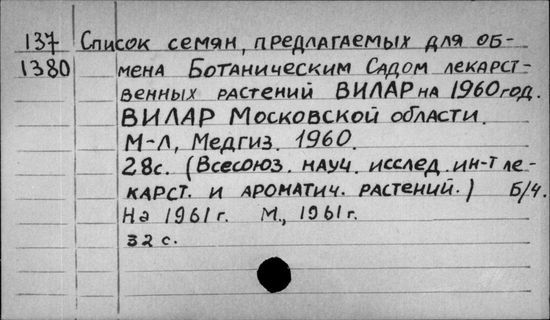 137 Список семян, предлагаемых для об-
1380 мена Ботаническим Садом лекарст-
венных растений ВИЛАР на 1960 год.
ВИЛАР Московской области.
М-Л, Медгиз. 1960.
28с. (Всесоюз. науч. исслед. ин-т ле-
карст. и ароматич. растений.) б/ч.
На 1961 г. М., 1961 г.
32 с.